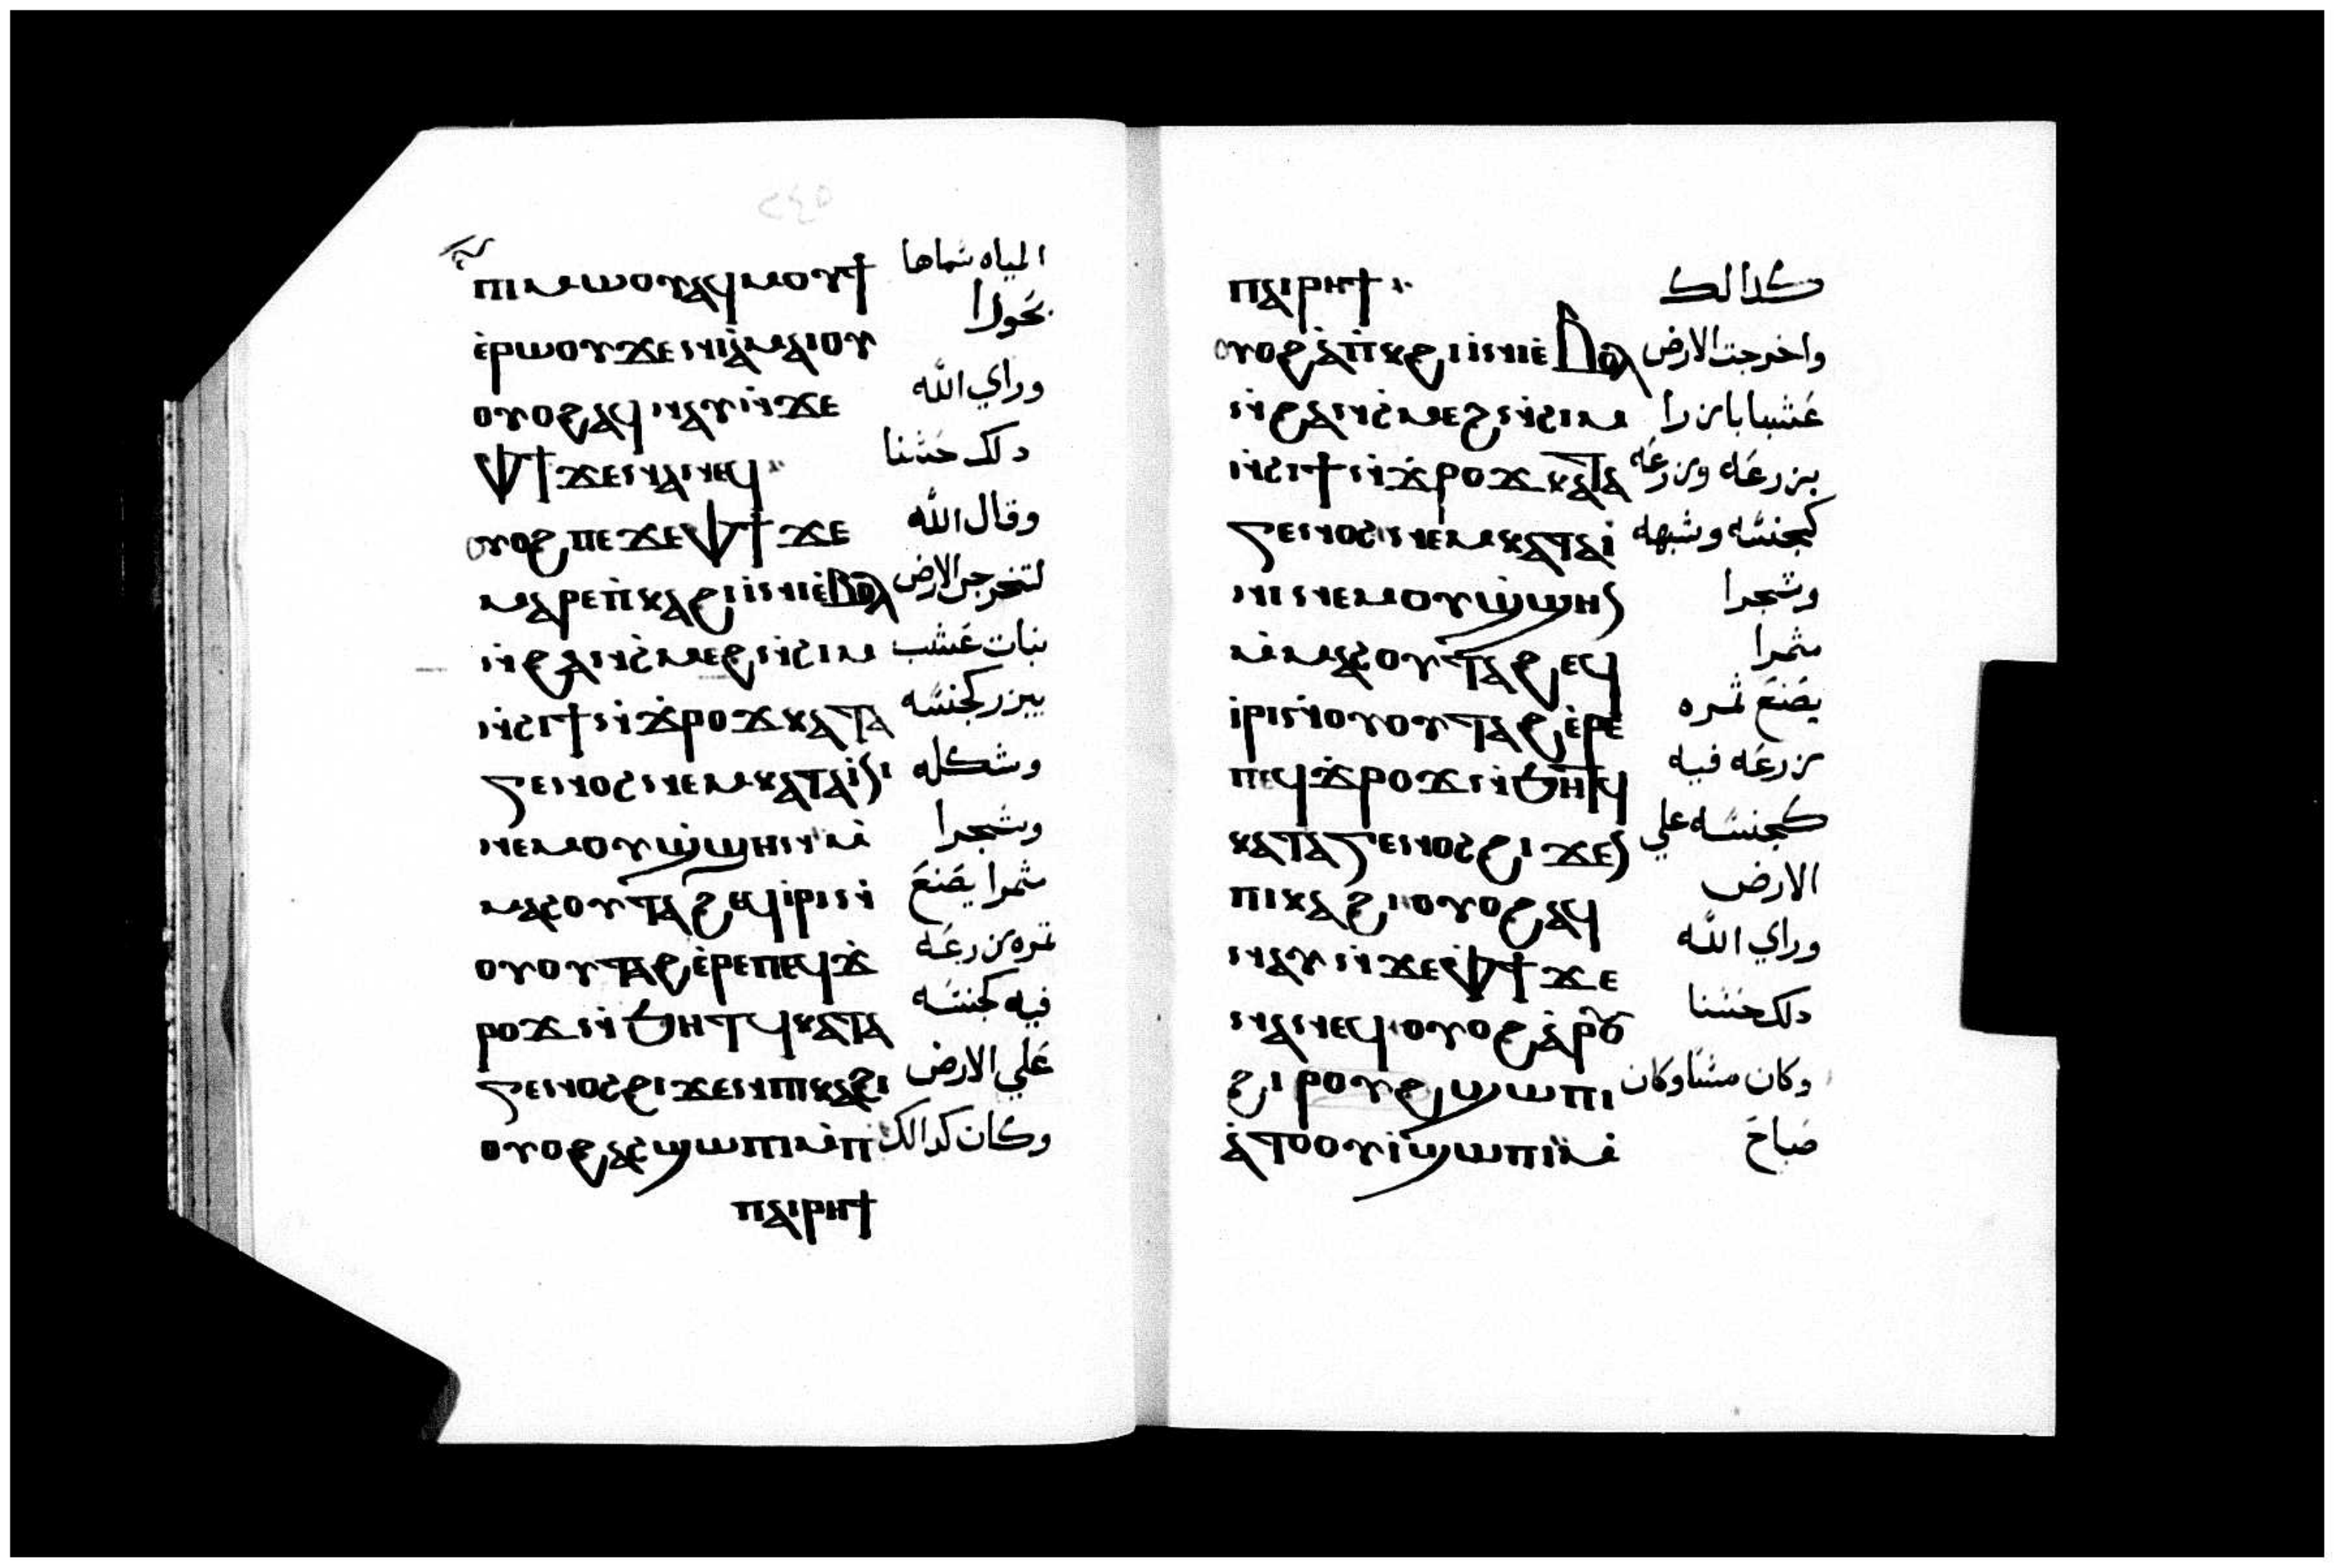 ⲡⲓⲙⲱⲟⲩⲁϥⲙⲟⲩϯ المياه سماها
ⲉ̀ⲣⲱⲟⲩϫⲉⲛⲓⲁ̀ⲙⲁⲓⲟⲩ بحورا
ⲟⲩⲟϩⲁϥⲛⲁⲩⲛ̀ϫⲉ وراي الله
ⲫϯϫⲉⲛⲁⲛⲉϥ دلك حسنا
ⲟⲩⲟϩⲡⲉϫⲉⲫϯϫⲉ وقال الله
ⲙⲁⲣⲉⲡ̀ⲕⲁϩⲓⲓ̀ⲛⲓⲉ̀ⲃⲟⲗ لتخرج الارض
ⲛ̀ϩⲁⲛⲥ̀ⲙⲉϩⲛ̀ⲥⲓⲙ نبات عشب
ⲛ̀ⲥⲓϯⲛ̀ϫ̀ⲣⲟϫⲕⲁⲧⲁ ببزر كجنسه
ⲅⲉⲛⲟⲥⲛⲉⲙⲕⲁⲧⲁⲓ̀ⲛⲓ وشكله
ⲛⲉⲙⲟⲩϣ̀ϣⲏⲛⲙ̀ وشجرا
ⲙⲁⲥⲟⲩⲧⲁϩⲉϥⲓ̀ⲣⲓⲛ̀ مثمرا يصنع
ⲟⲩⲟⲩⲧⲁϩⲉ̀ⲣⲉⲡⲉϥϫ̀ ثمره بزرعه
ⲣⲟϫⲛ̀ϧⲏⲧϥⲕⲁⲧⲁ فيه كجنسه
ⲅⲉⲛⲟⲥϩⲓϫⲉⲛⲡⲓⲕⲁϩⲓ علي الارض
ⲟⲩⲟϩⲁⲥϣⲱⲡⲓⲙ̀ⲡ وكان كدالك
ⲡⲁⲓⲣⲏϯ
ⲡⲁⲓⲣⲏϯ كدالك
ⲟⲩⲟϩⲁ̀ⲡ̀ⲕϩⲓⲓ̀ⲛⲓⲉ̀ⲃⲟⲗ واخرجت الارض
ⲛ̀ϩⲁⲛⲥ̀ⲙⲉϩⲛ̀ⲥⲓⲙ عشبا بابزرا
ⲛ̀ⲥⲓϯⲛ̀ϫ̀ⲣⲟϫⲕⲁⲧⲁ بزرعه وبزرعه
ⲅⲉⲛⲟⲥⲛⲉⲙⲕⲁⲧⲁⲓ̀ كجنسه وشبهه
ⲛⲓⲛⲉⲙⲟⲩϣ̀ϣⲏⲛ وشجرا
ⲙ̀ⲙⲁⲥⲟⲩⲧⲁϩⲉϥ مثمرا
ⲓ̀ⲣⲓⲛ̀ⲟⲩⲟⲩⲧⲁϩⲉ̀ⲣⲉ يصنع ثمره
ⲡⲉϥϫ̀ⲣⲟϫⲛ̀ϧⲏⲧϥ بزرعه فيه
ⲕⲁⲧⲁⲅⲉⲛⲟⲥϩⲓϫⲉⲛ كجنسه علي
ⲡⲓⲕⲁϩⲓⲟⲩⲟϩⲁϥ الارض
ⲛⲁⲩⲛ̀ϫⲉⲫϯϫⲉ وراي الله
ⲛⲁⲛⲉϥⲟⲩⲟϩⲁ̀ⲣⲟⲩ دلك حسنا
ϩⲓⲣⲟⲩϩⲓϣⲱⲡⲓ وكان مسا وكان
ⲁ̀ⲧⲟⲟⲩⲓ̀ϣⲱⲡⲓⲙ̀ صباح